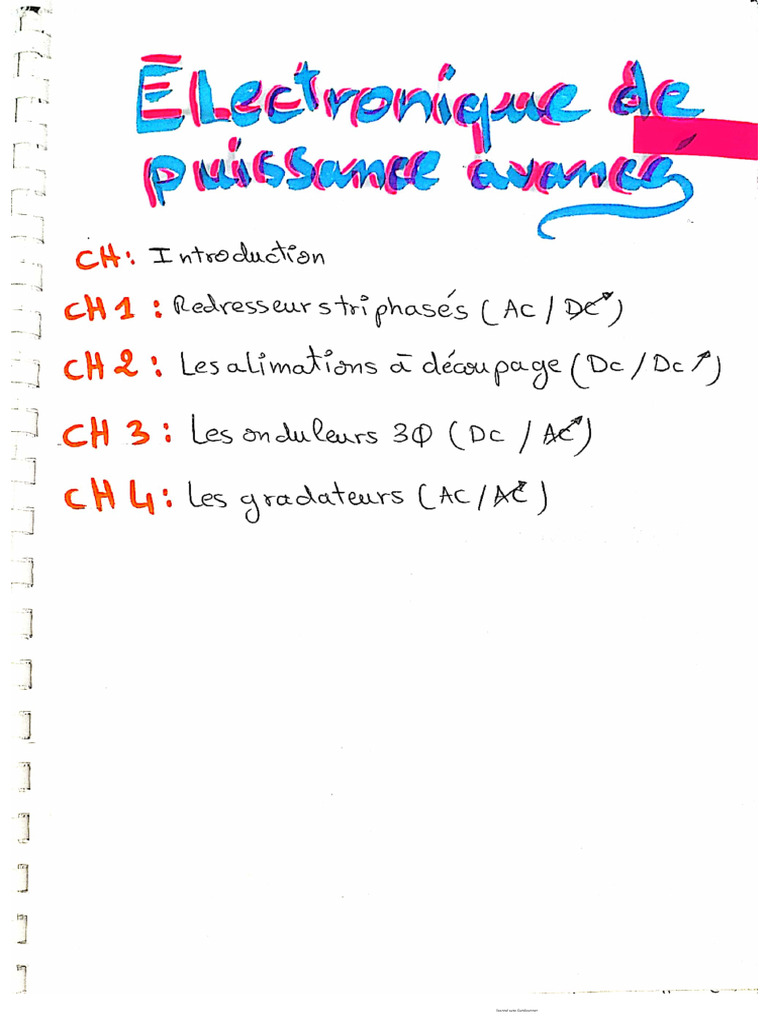 Électronique de
puissance avancé
CH: Introduction
CH1: Redresseurs triphasés (AC / DC)
CH2: Les alimations à découpage (Dc / Dc)
CH3: Les onduleurs 3Φ (DC / AC)
CH4: Les gradateurs (AC / AC)